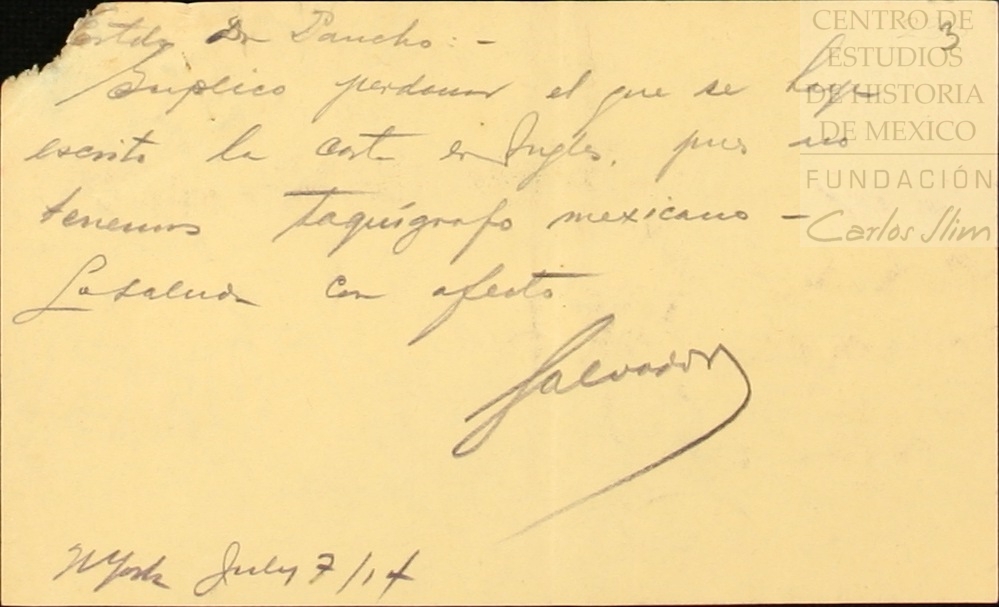 3
Estdo Dn Pancho:-
Suplico perdonar el que se haya
escrito la carta en Inglés, pues no
tenemos taquígrafo mexicano -
Lo saluda con afecto
Salvador
N York July 7/14
CENTRO DE
ESTUDIOS
DE HISTORIA
DE MEXICO
FUNDACIÓN
Carlos Slim